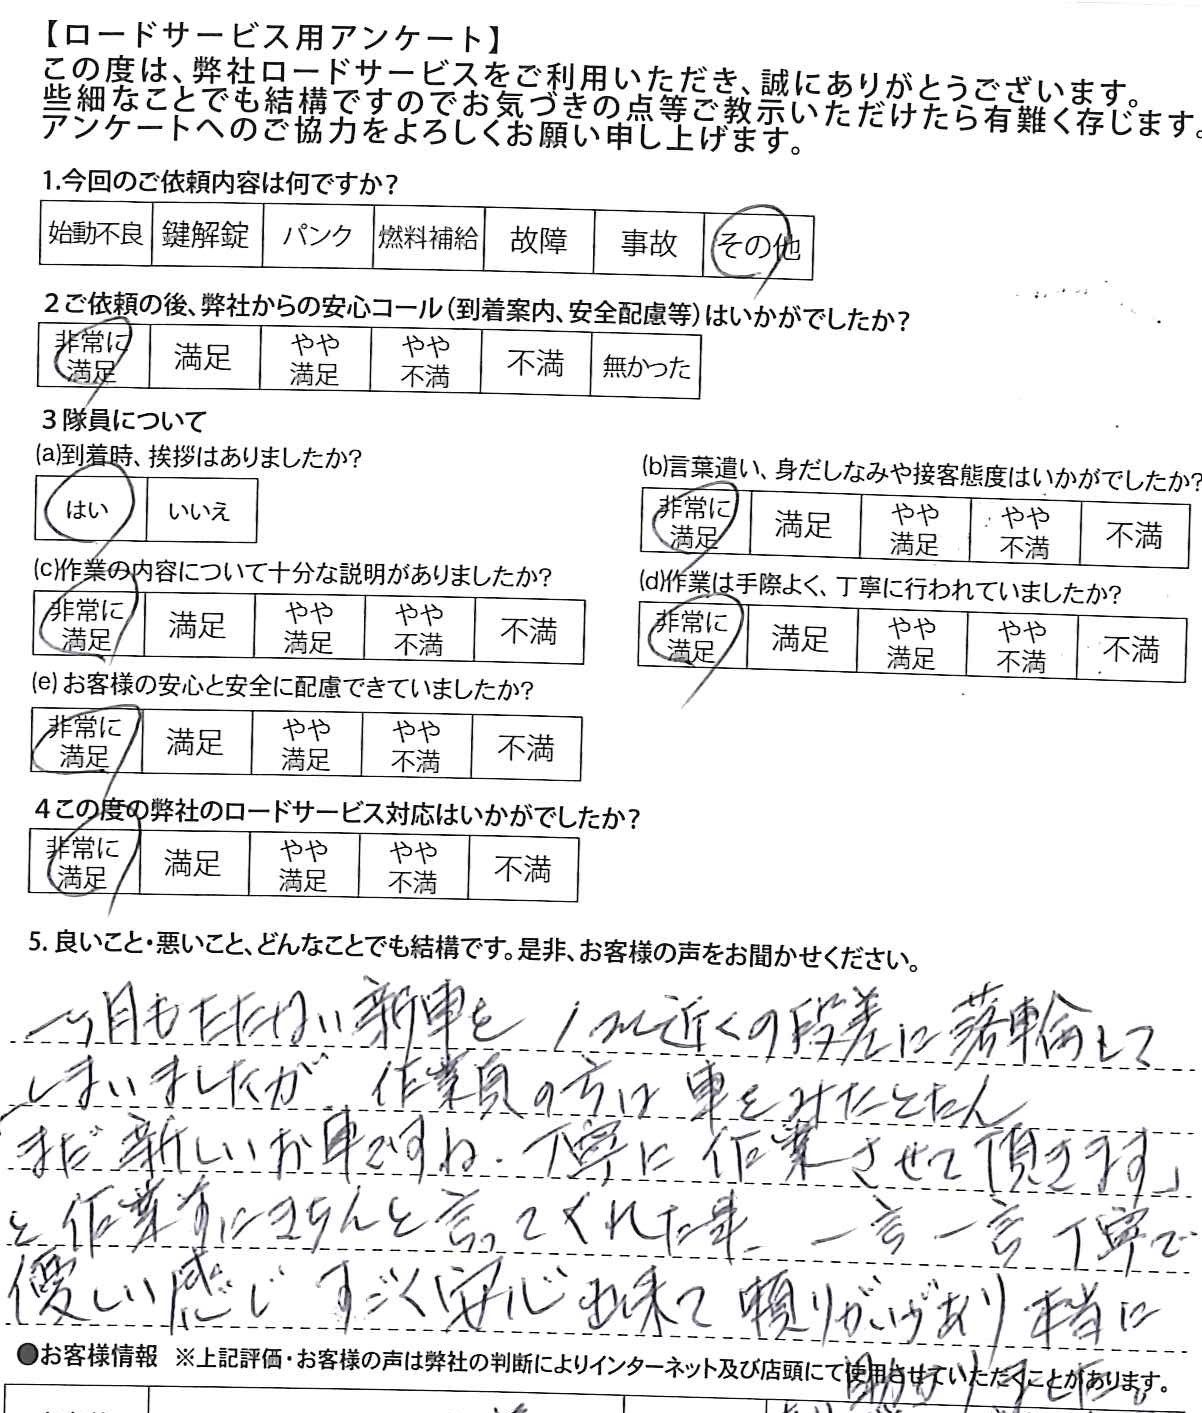 【ロードサービス用アンケート】
この度は、弊社ロードサービスをご利用いただき、誠にありがとうございます。
些細なことでも結構ですのでお気づきの点等ご教示いただけたら有難く存じます。
アンケートへのご協力をよろしくお願い申し上げます。
1.今回のご依頼内容は何ですか?
始動不良 鍵解錠 パンク 燃料補給 故障 事故 その他
2ご依頼の後、弊社からの安心コール(到着案内、安全配慮等)はいかがでしたか?
非常に満足 満足 やや満足 やや不満 不満 無かった
3隊員について
(a)到着時、挨拶はありましたか?
はい いいえ
(b)言葉遣い、身だしなみや接客態度はいかがでしたか?
非常に満足 満足 やや満足 やや不満 不満
(c)作業の内容について十分な説明がありましたか?
非常に満足 満足 やや満足 やや不満 不満
(d)作業は手際よく、丁寧に行われていましたか?
非常に満足 満足 やや満足 やや不満 不満
(e)お客様の安心と安全に配慮できていましたか?
非常に満足 満足 やや満足 やや不満 不満
4この度の弊社のロードサービス対応はいかがでしたか?
非常に満足 満足 やや満足 やや不満 不満
5.良いこと・悪いこと、どんなことでも結構です。是非、お客様の声をお聞かせください。
一ヶ月もたたない新車を 1m近くの段差に落輪して
しまいましたが、作業員の方は車をみたとたん
「まだ新しいお車ですね.丁寧に作業させて頂きます」
と作業前にきちんと言ってくれた事、一言一言丁寧で
優しい感じ すごく安心出来て頼りがいがあり本当に
助かりました。
●お客様情報 ※上記評価・お客様の声は弊社の判断によりインターネット及び店頭にて使用させていただくことがあります。